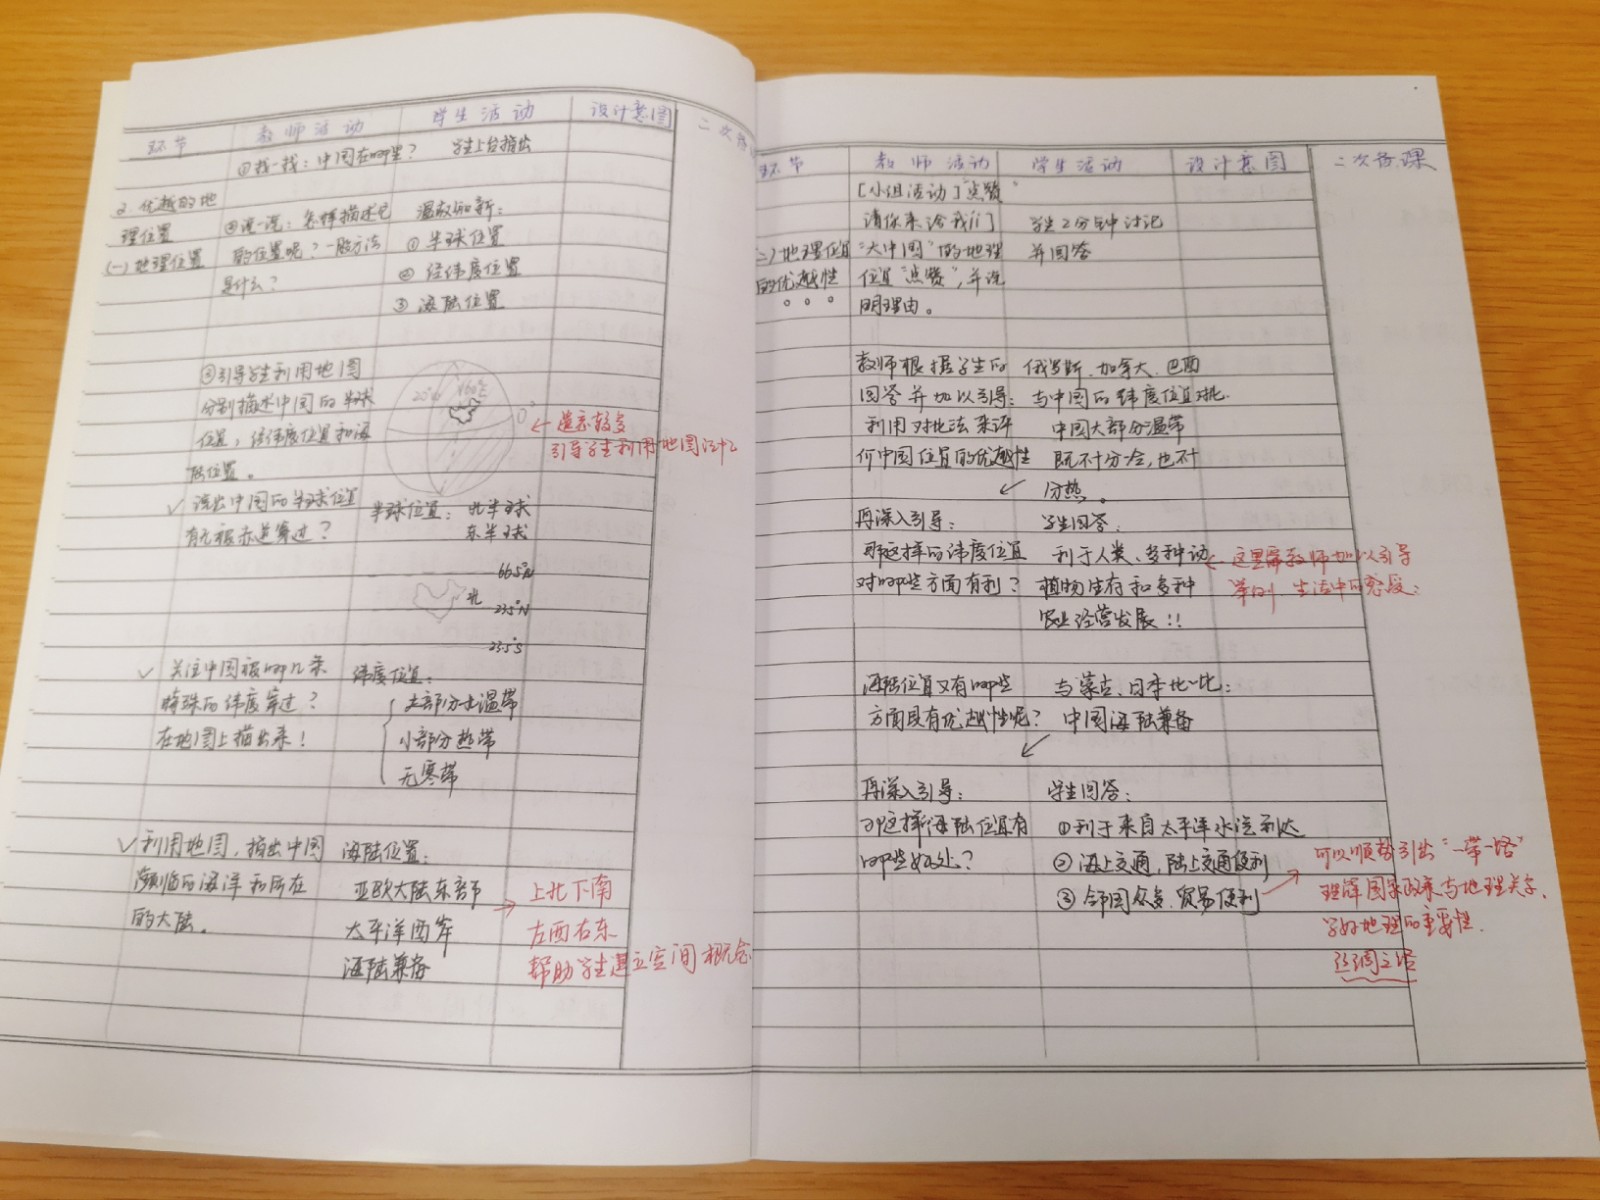 环节 教师活动 学生活动 设计意图 二次备
①找一找：中国在哪里？ 学生上台指出
2.优越的地
理位置
(一)地理位置
②说一说：怎样描述它
的位置呢？一般方法
是什么？
温故知新：
①半球位置
②经纬度位置
③海陆位置
③引导学生利用地图
分别描述中国的半球
位置，经纬度位置和海
陆位置。
20°W 160°E
0°
← 遗忘较多
引导学生利用地图记忆
✓ 读出中国的半球位置
有无被赤道穿过？
半球位置：北半球
东半球
66.5°N
北
23.5°N
23.5°S
✓ 关注中国被哪几条
特殊的纬度穿过？
在地图上描出来！
纬度位置：
大部分北温带
小部分热带
无寒带
✓ 利用地图，指出中国
濒临的海洋和所在
的大陆。
海陆位置：
亚欧大陆东部
太平洋西岸
海陆兼备
上北下南
左西右东
帮助学生建立空间概念
环节 教师活动 学生活动 设计意图 二次备课
(二)地理位置
的优越性
。。。
[小组活动]"点赞"
请你来给我们
"大中国"的地理
位置"点赞"，并说
明理由。
学生2分钟讨论
并回答
教师根据学生的
回答并加以引导：
利用对比法来评
价中国位置的优越性
俄罗斯、加拿大、巴西
与中国的纬度位置对比.
中国大部分温带
既不分冷，也不
分热。
再深入引导：
那这样的纬度位置
对哪些方面有利？
学生回答：
利于人类、多种动
植物生存和多种
农业经营发展！！
← 这里需教师加以引导
举例，生活中的
海陆位置又有哪些
方面具有优越性呢？
与蒙古、日本比一比：
中国海陆兼备
再深入引导：
那这样海陆位置有
哪些好处？
学生回答：
①利于来自太平洋水汽到达
②海上交通，陆上交通便利
③邻国众多，贸易便利
可以顺势引出"一带一路"
理解国家政策与地理关系，
学好地理的重要性.
丝绸之路